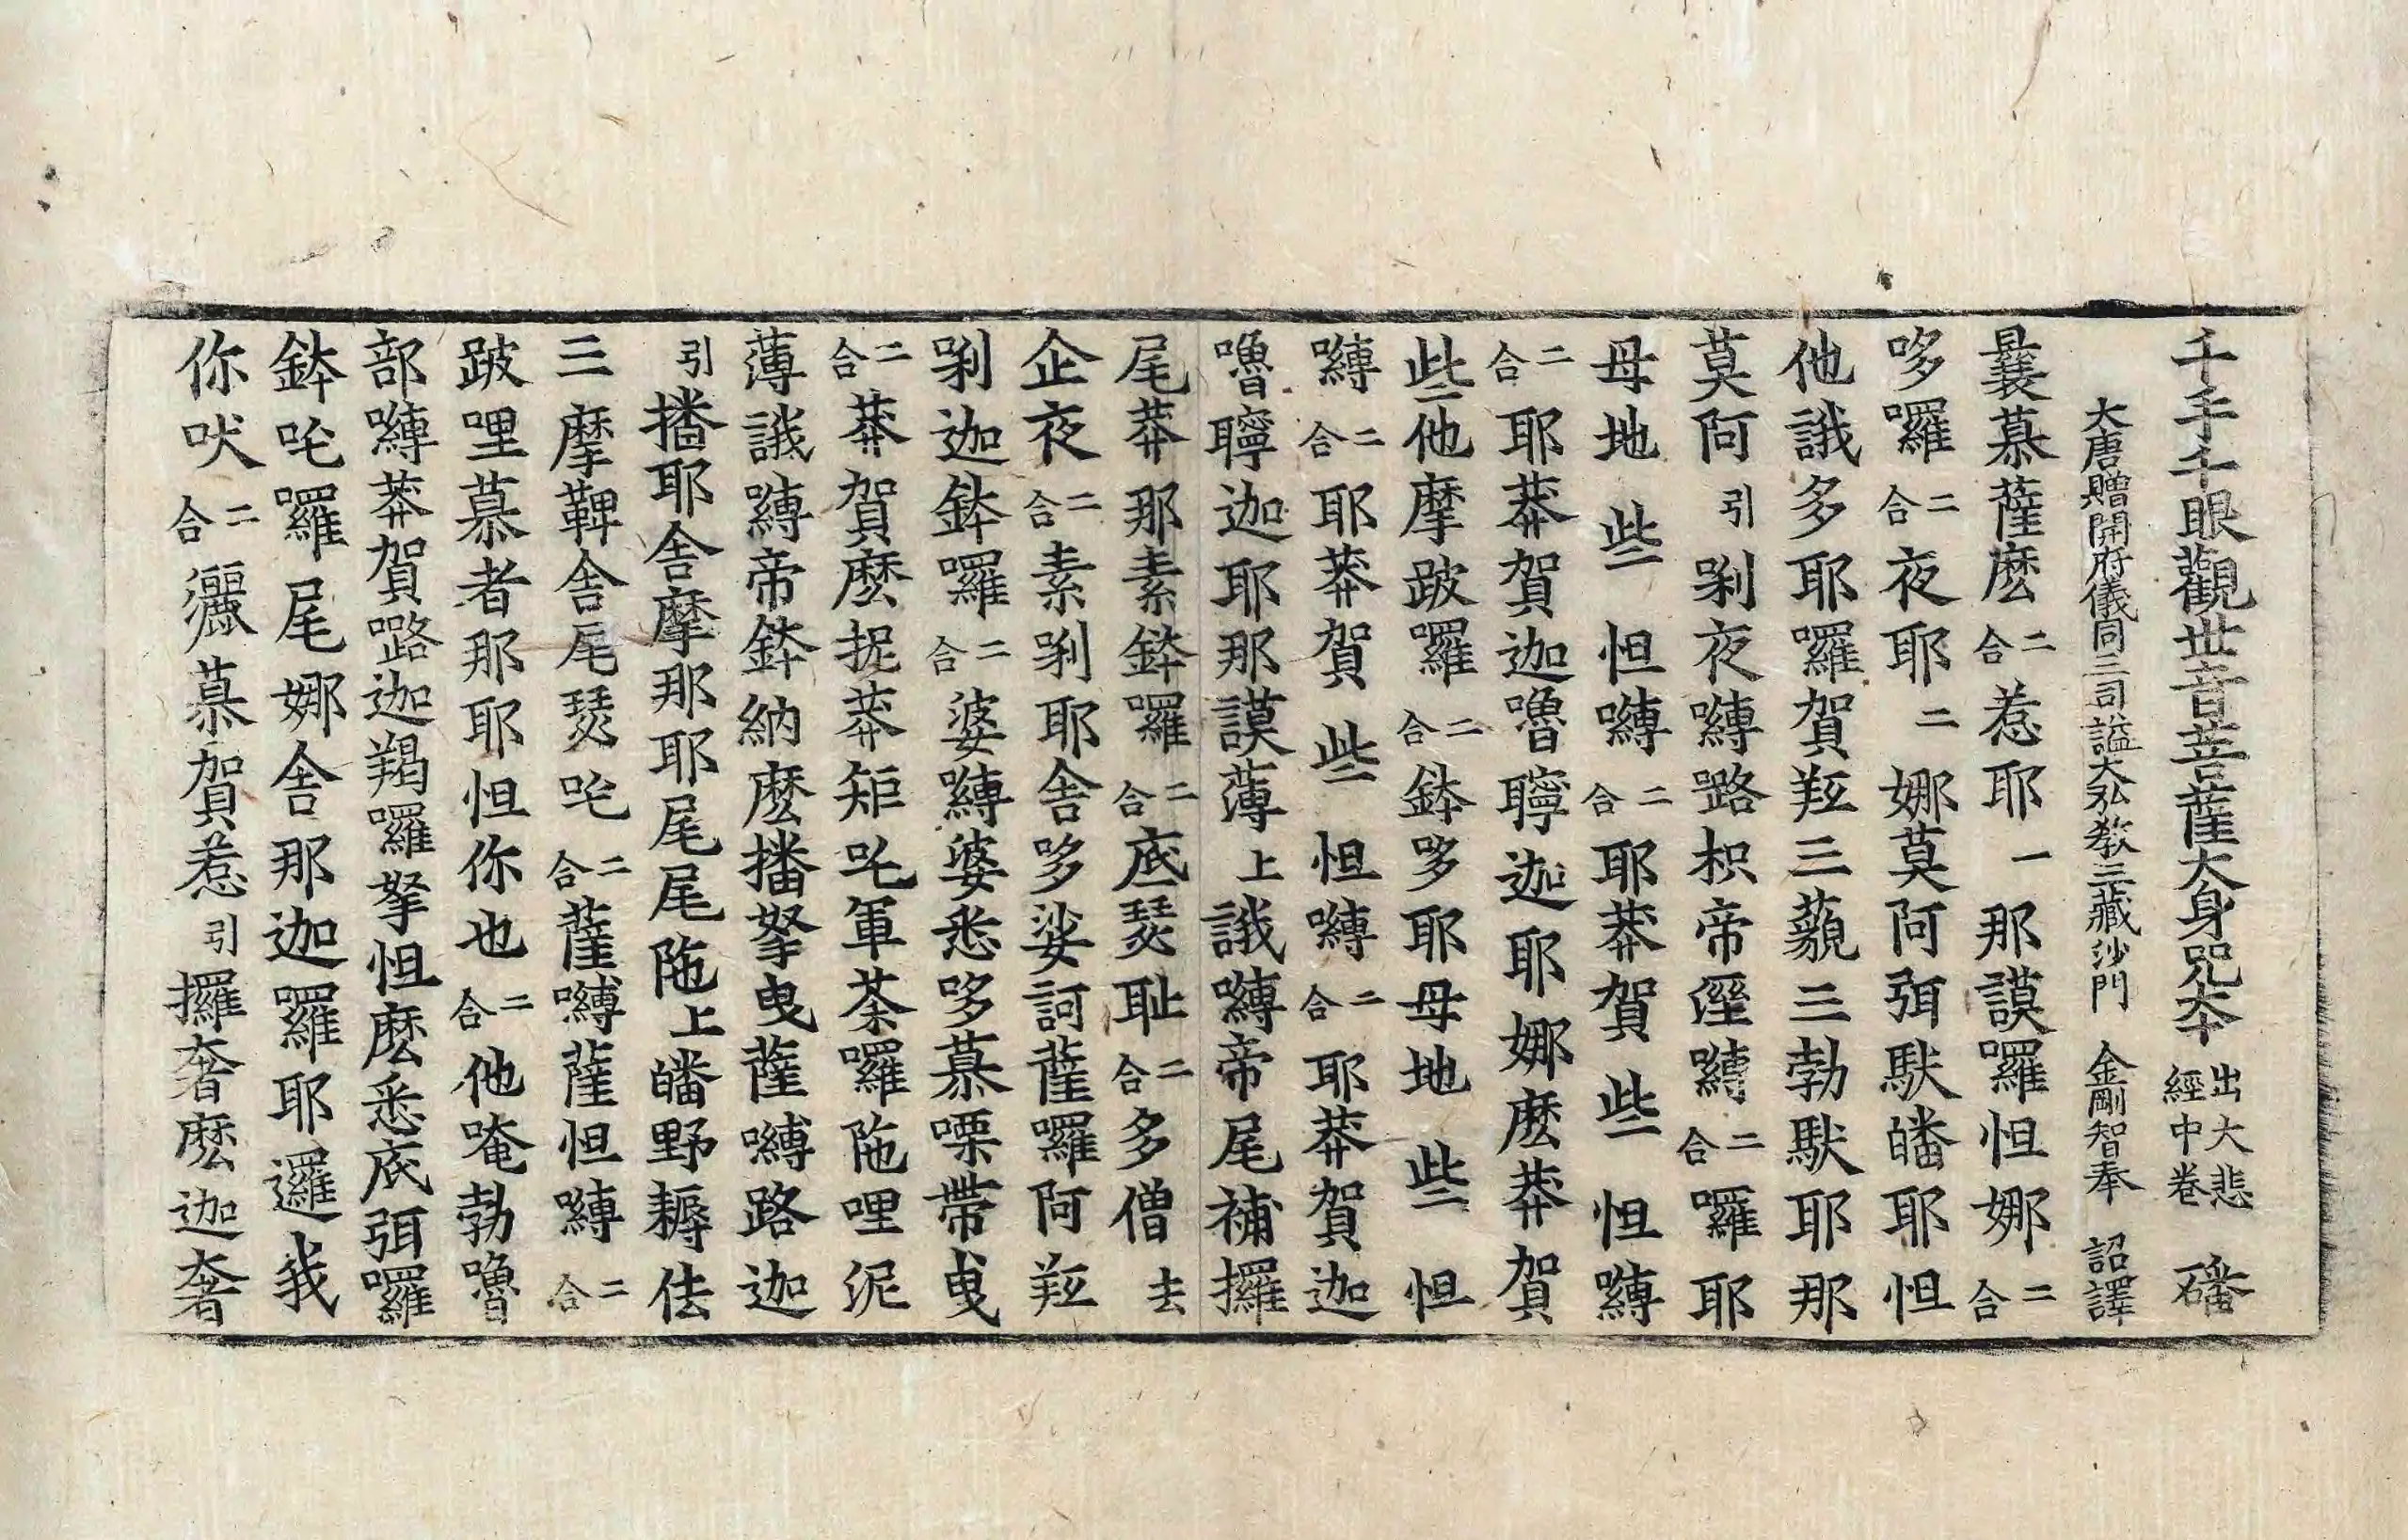 千手千眼觀世音菩薩大身咒本 出大悲經中卷 磻
大唐贈開府儀同三司謚大弘教三藏沙門 金剛智奉 詔譯
曩慕薩麽二合惹耶一那謨囉怛娜二合
哆囉二合夜耶二娜莫阿弭馱皤耶怛
他誐多耶囉賀羝三藐三勃馱耶那
莫阿引剁夜嚩路枳帝溼嚩二合囉耶
母地些怛嚩二合耶莽賀些怛嚩
二合耶莽賀迦嚕聹迦耶娜麽莽賀
些他摩跛囉二合鉢哆耶母地些怛
嚩二合耶莽賀些怛嚩二合耶莽賀迦
嚕聹迦耶那謨薄上誐嚩帝尾補攞
尾莽那素鉢囉二合底瑟耻二合多僧去
企夜二合素剁耶舍哆娑訶薩囉阿羝
剁迦鉢囉二合婆嚩婆悉哆慕㗚帶曳
二合莽賀麽捉莽矩吒軍荼囉陁哩泥
薄誐嚩帝鉢納麽播拏曳薩嚩路迦
引播耶舍摩那耶尾尾陁上皤野耨佉
三摩鞞舍尾瑟吒二合薩嚩薩怛嚩二合
跛哩慕者那耶怛你也二合他唵勃嚕
部嚩莽賀路迦羯囉拏怛麽悉底弭囉
鉢吒囉尾娜舍那迦囉耶邏我
你吠二合灑慕賀惹引攞奢麽迦奢